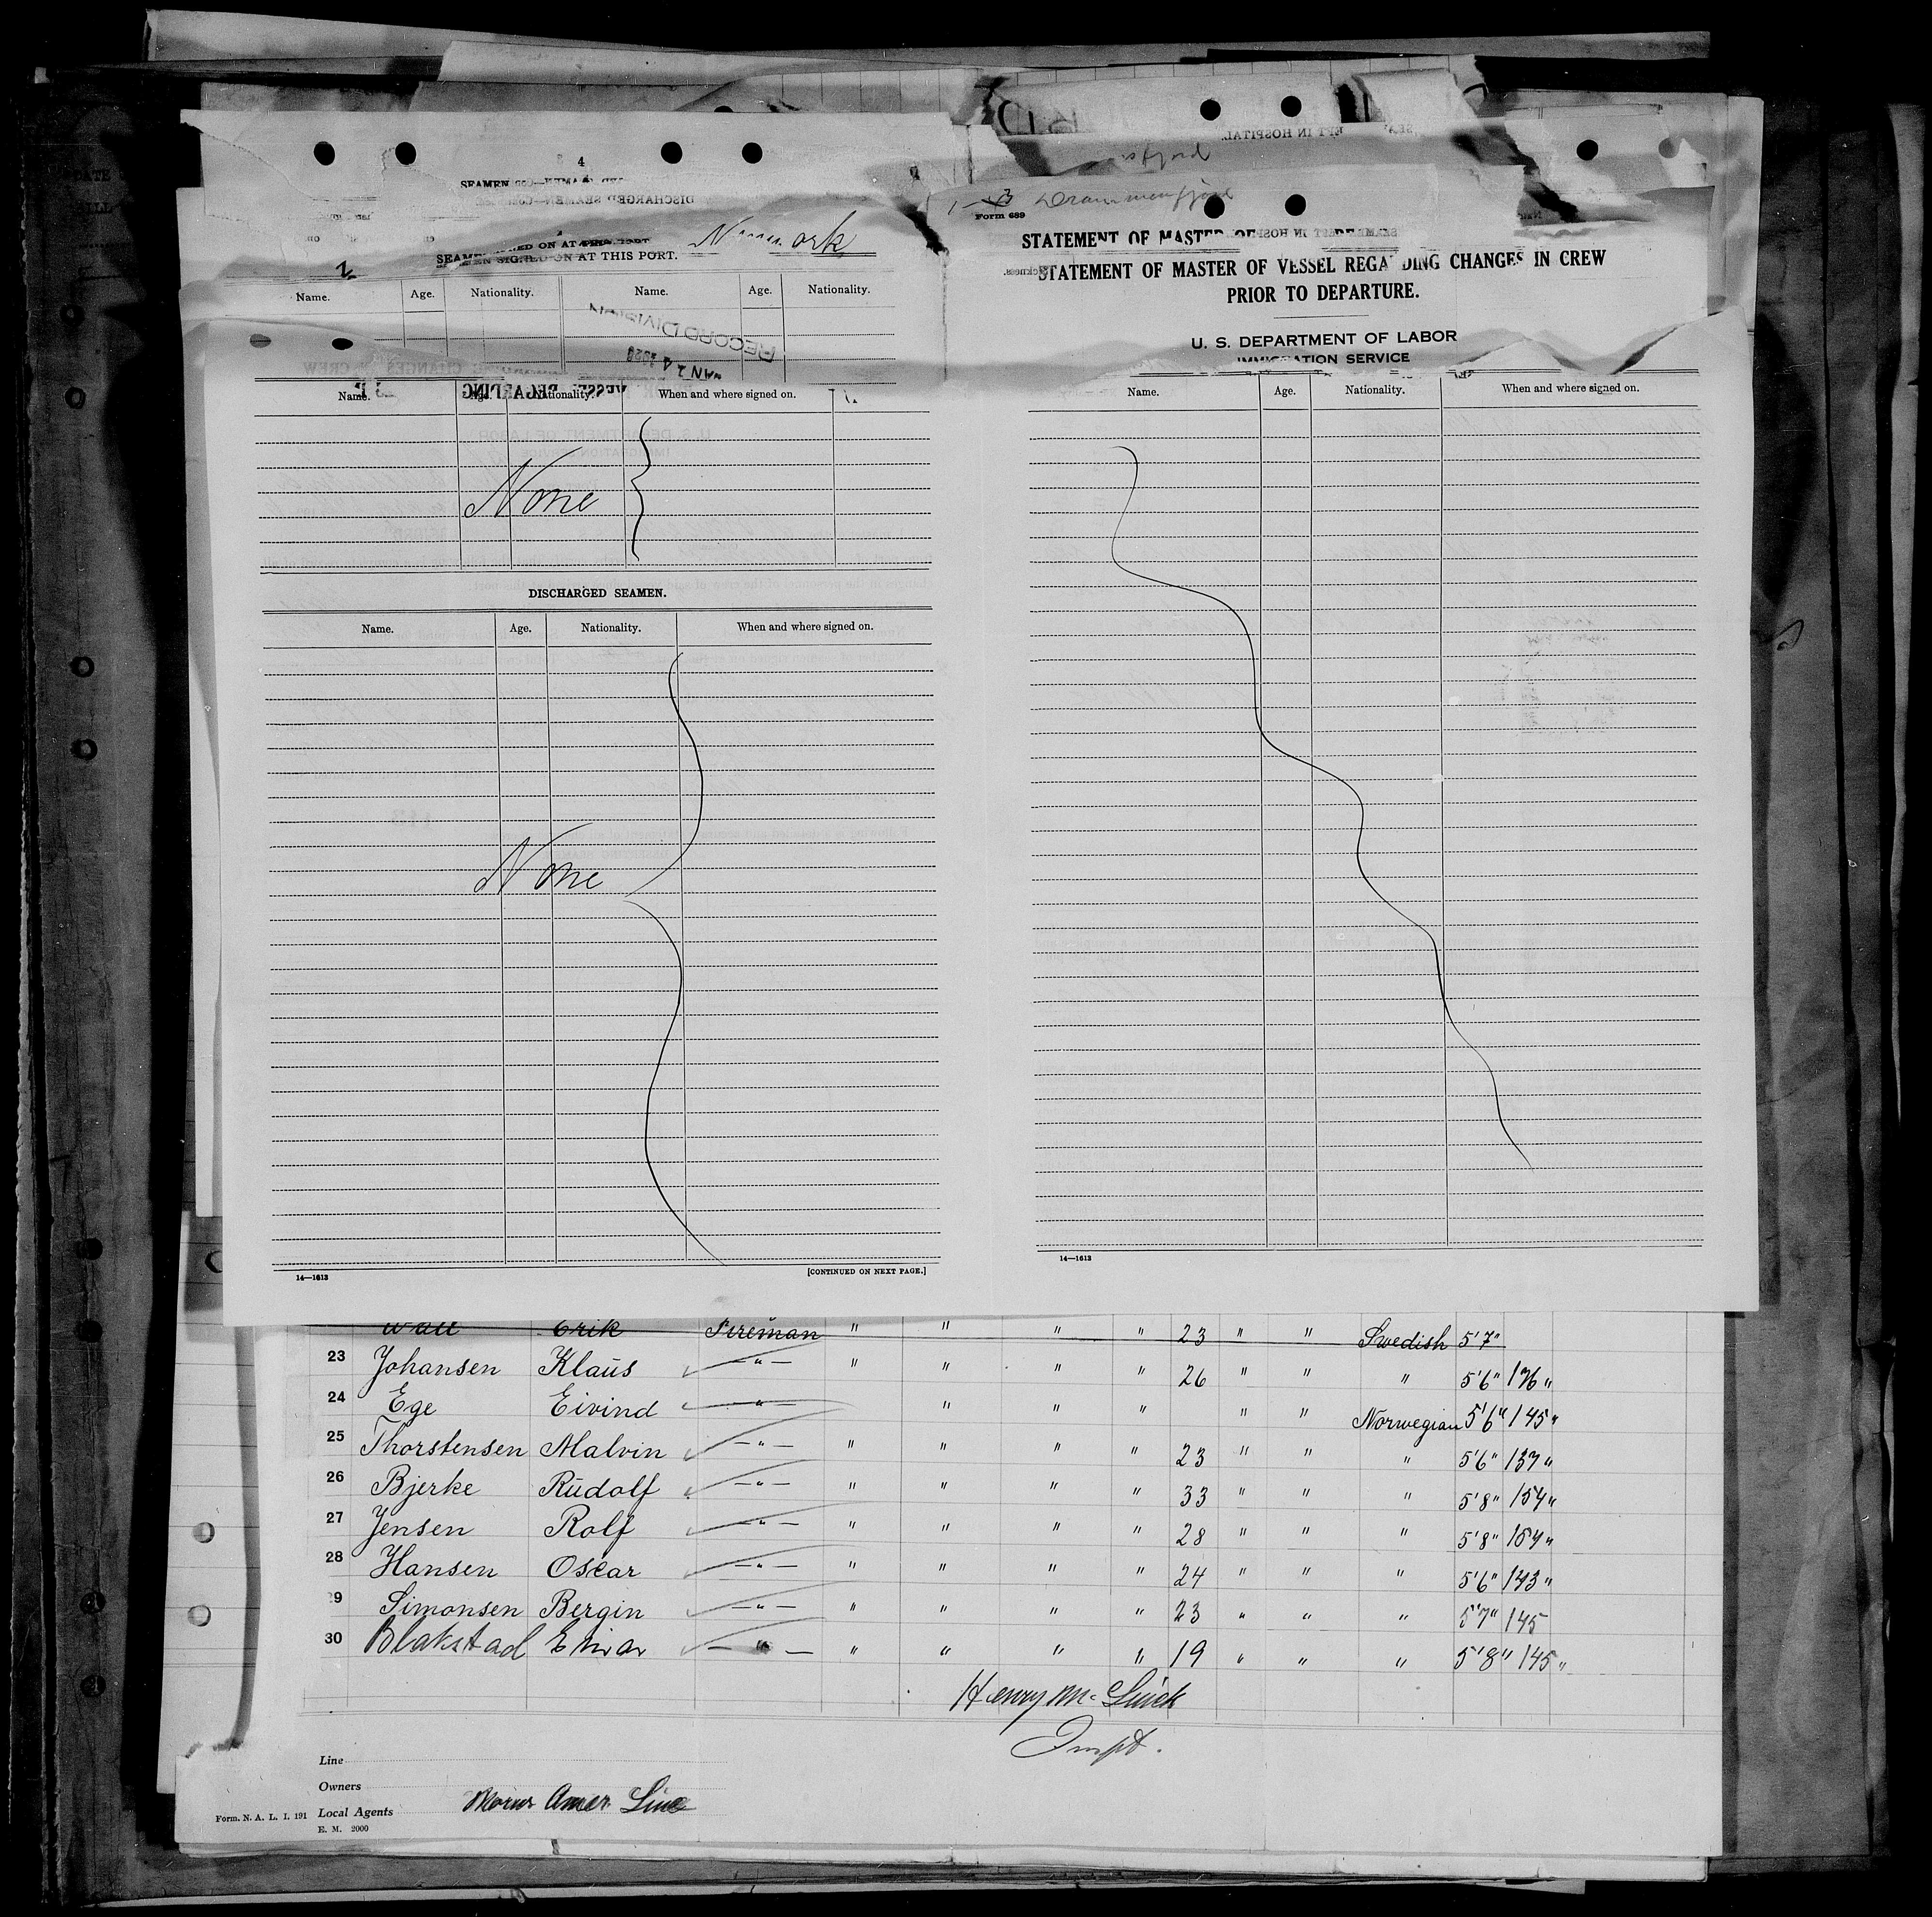 4
SEAMEN
SEAMEN SIGNED ON AT THIS PORT.
Name. Age. Nationality. Name. Age. Nationality.
RECORD DIVISION
JAN 24 1928
Drammensfjord
Form 689
STATEMENT OF MASTER OF
STATEMENT OF MASTER OF VESSEL REGARDING CHANGES IN CREW
PRIOR TO DEPARTURE.
U. S. DEPARTMENT OF LABOR
IMMIGRATION SERVICE
Name. Nationality. When and where signed on.
None
DISCHARGED SEAMEN.
Name. Age. Nationality. When and where signed on.
None
14—1613 [CONTINUED ON NEXT PAGE.]
Name. Age. Nationality. When and where signed on.
14—1613
Wall Erik Fireman " " " " 23 " " Swedish 5'7"
23 Johansen Klaus — " — " " " " 26 " " " 5'6" 136 "
24 Ege Eivind — " — " " " " " Norwegian 5'6" 145 "
25 Thorstensen Malvin — " — " " " " 23 " " " 5'6" 137 "
26 Bjerke Rudolf — " — " " " " 33 " " " 5'8" 154 "
27 Jensen Rolf — " — " " " " 28 " " " 5'8" 154 "
28 Hansen Oscar — " — " " " " 24 " " " 5'6" 143 "
29 Simonsen Bergin — " — " " " " 23 " " " 5'7" 145
30 Blakstad Einar — " — " " " " 19 " " " 5'8" 145 "
Henry Mc
Inspt.
Line
Owners
Form. N. A. L. I. 191 Local Agents Norw Amer. Line
E. M. 2000